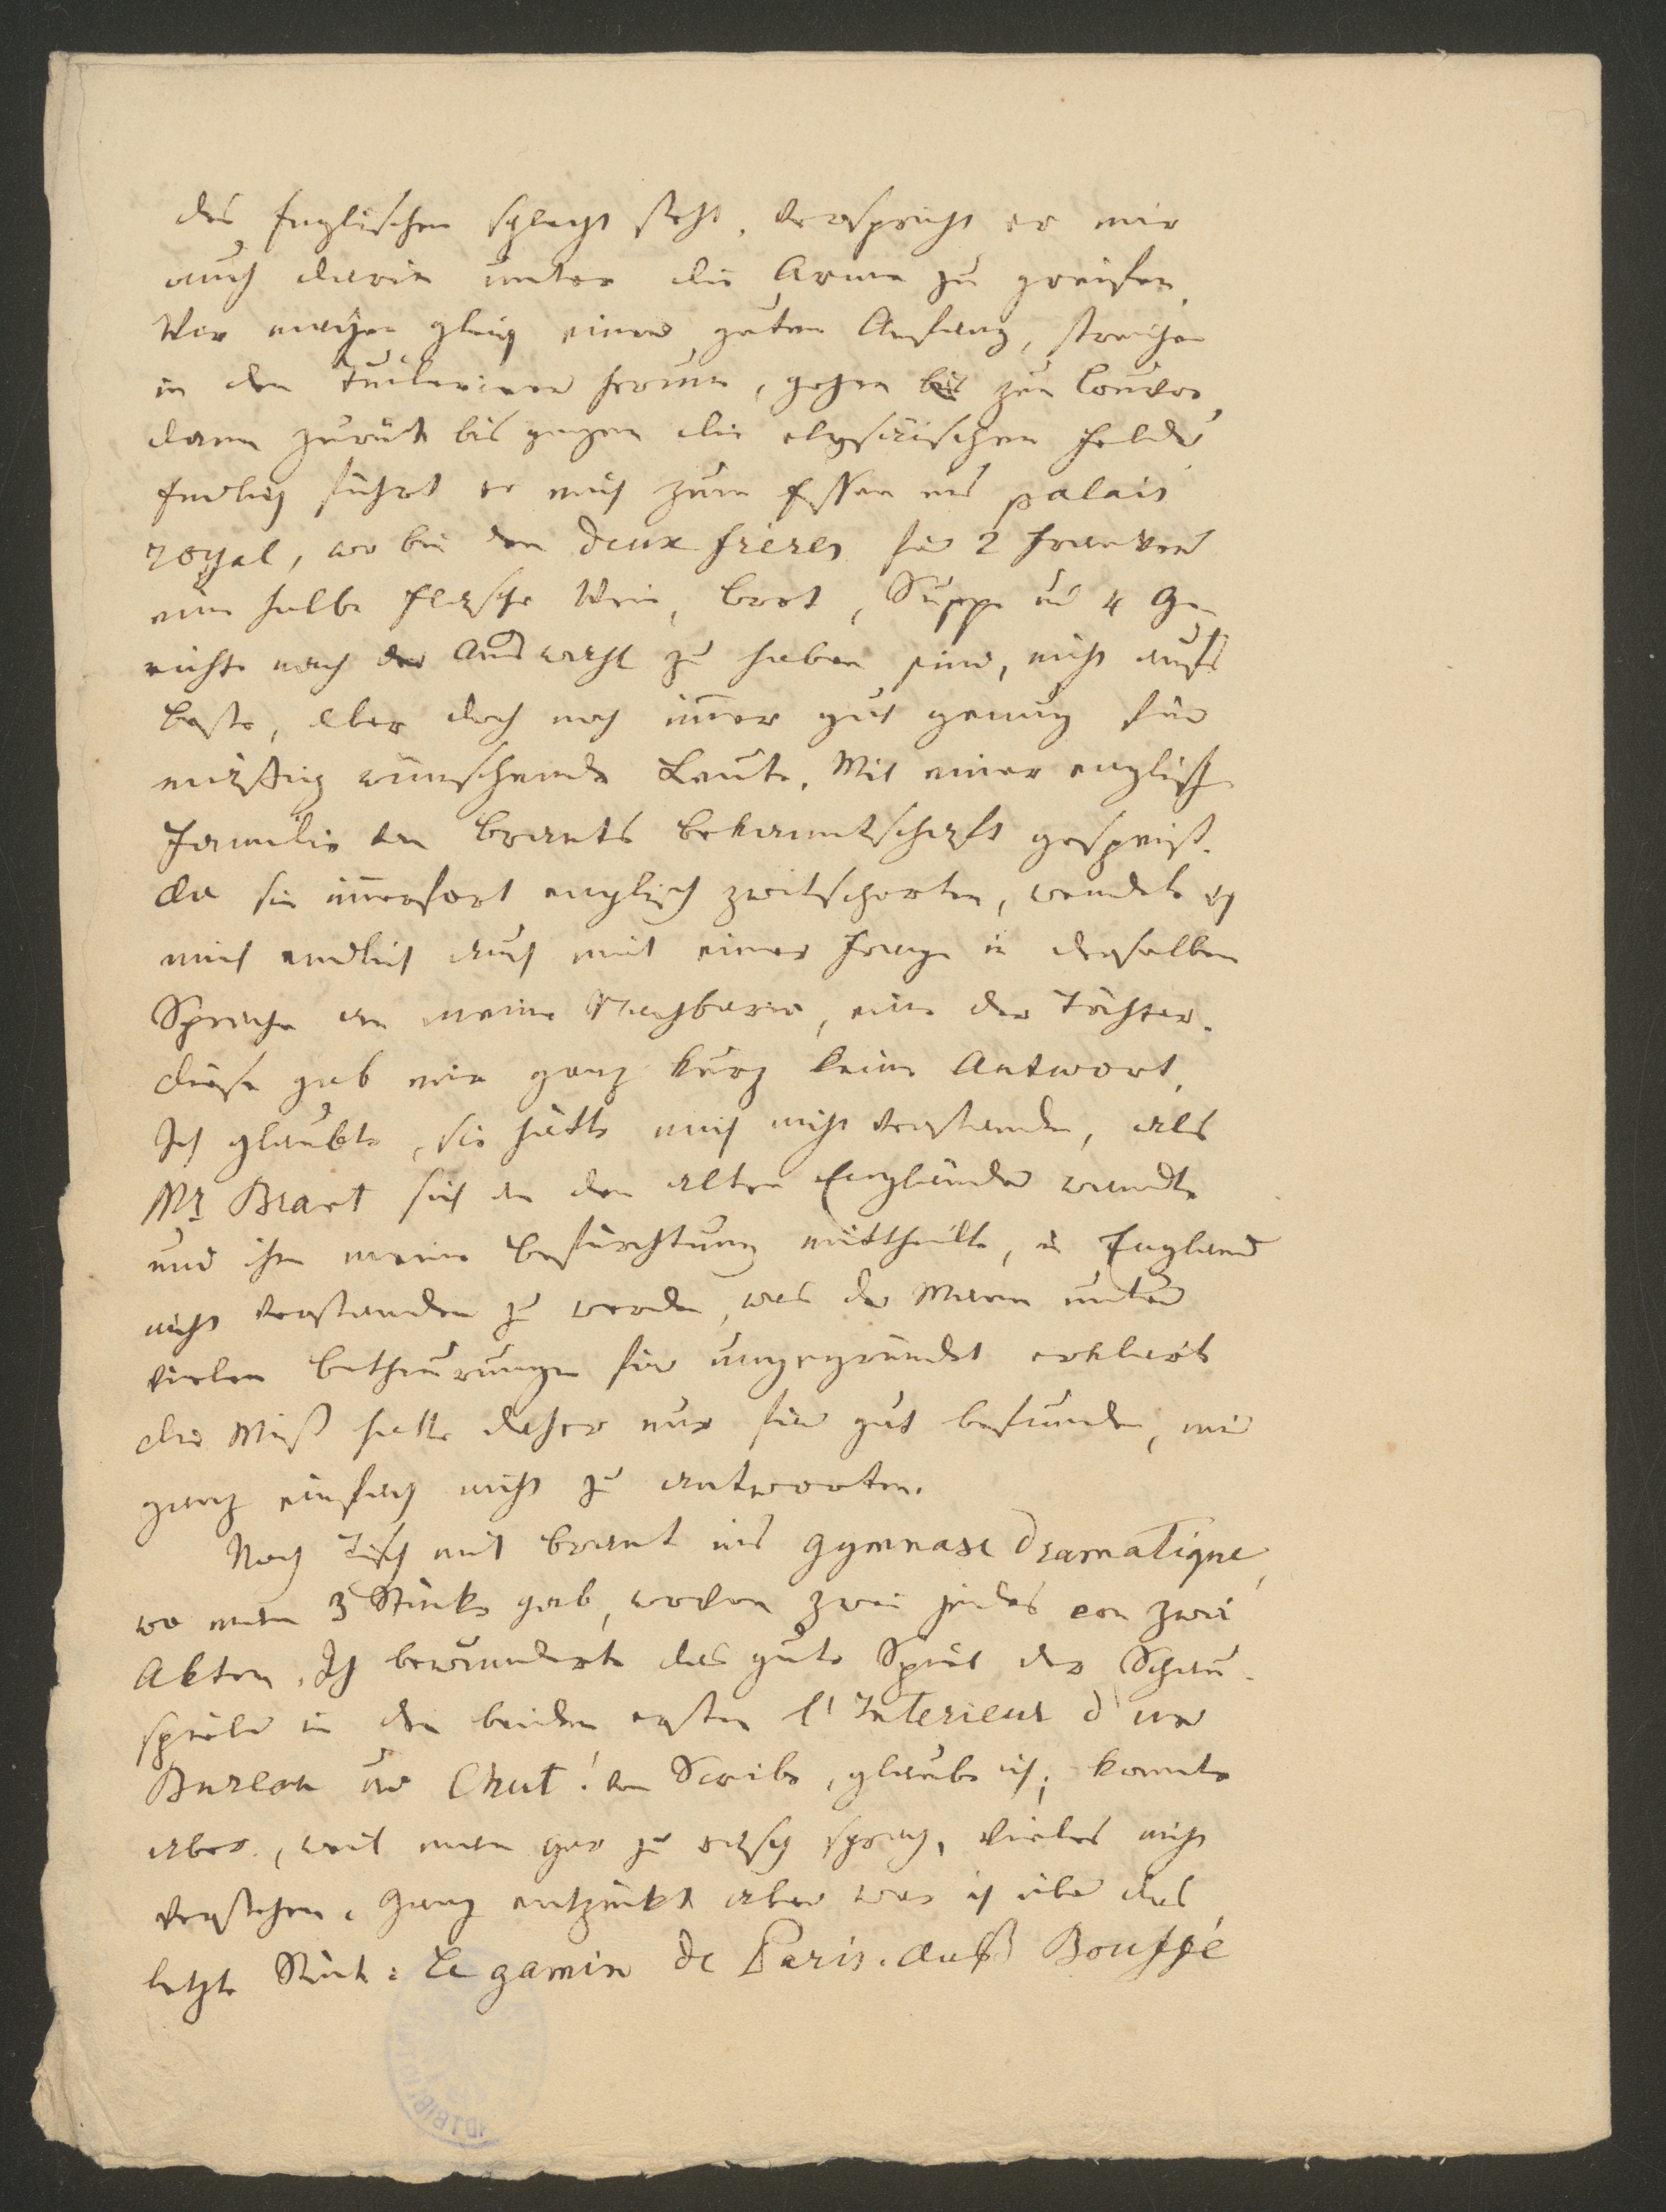 des Englischen schlecht steht, verspricht er mir
auch darin unter die Arme zu greifen.
Wir machen gleich einen guten Anfang, streichen
in den Tuilerieen herum, gehen bis zum Louvre,
dann zurück bis gegen die elysäischen Felder
Endlich führt er mich zum Essen ins palais
royal, wo bei den deux frères für 2 Franken
eine halbe Flasche Wein, Brot, Suppe und 4 Ge-
richte nach der Auswahl zu haben sind, nicht aufs
beste, aber doch noch immer gut genug für
mäßig wünschende Leute. Mit einer englischen
Familie von Brants Bekanntschaft gespeist.
Da sie immerfort englisch zwitscherten, wendete ich
mich endlich auch mit einer Frage in derselben
Sprache an meine Nachbarin, eine der Töchter.
Diese gab mir ganz kurz keine Antwort.
Ich glaubte, sie hätte mich nicht verstanden, als
Mr Brant sich an den alten Engländer wandte
und ihm meine Befürchtung mittheilte, in England
nicht verstanden zu werden, was der Mann unter
vielen Betheurungen für ungegründet erklärte
die Miß hatte daher nur für gut befunden, mir
ganz einfach nicht zu antworten.
Nach Tisch mit Brant ins gymnase dramatique,
wo man 3 Stücke gab, wovon zwei jedes von zwei
Akten. Ich bewunderte das gute Spiel der Schau-
spieler in den beiden ersten l'Interieur d'un
Bureau und Chut! von Scribe, glaube ich, konnte
aber, weil man gar zu rasch sprach, vieles nicht
verstehen. Ganz entzückt aber war ich über das
letzte Stück: Le gamin de Paris. Daß Bouffé